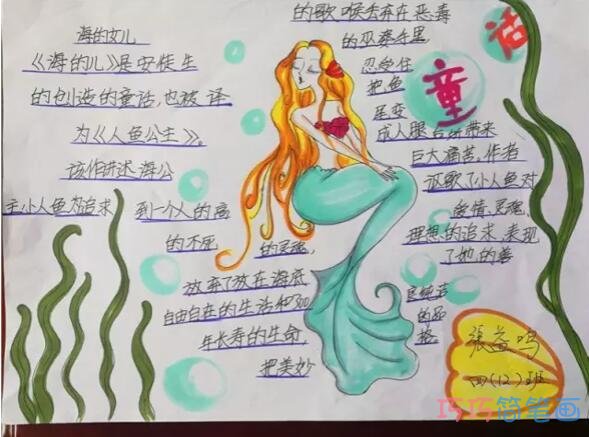 海的女儿
《海的儿》是安徒生
的创造的童话,也被译
为《人鱼公主》。
该作讲述海公
主小人鱼为追求
到一个人的高
的不死
的灵魂,
放弃了放在海底
自由自在的生活和300
年长寿的生命,
把美妙
的歌喉丢弃在恶毒
的巫婆手里,
忍受住
把鱼
尾变
成人腿 带来
巨大痛苦,作者
讴歌了小人鱼对
爱情、灵魂、
理想的追求,表现
了她的善
良纯洁
的品
格。
童
话
張益鸣
四(12)班
巧巧简笔画